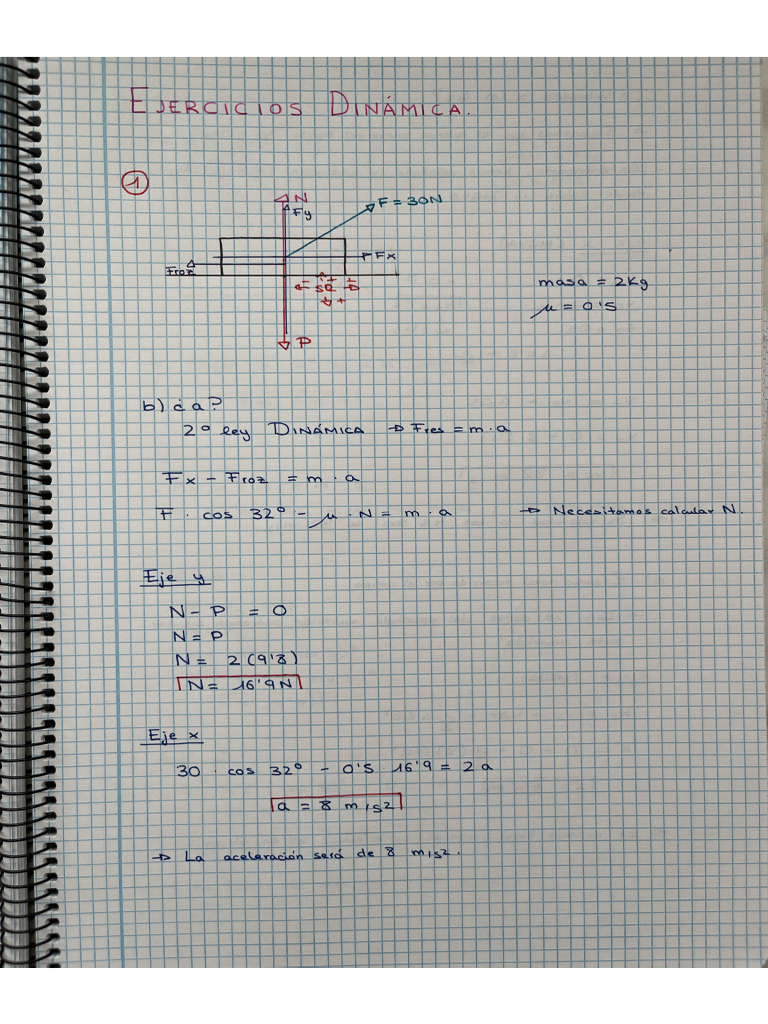 EJERCICIOS DINÁMICA.
1
N
Fy
F = 30N
Froz
Fx
- SR +
+
P
masa = 2Kg
μ = 0'5
b) ¿a?
2º ley DINÁMICA → Fres = m·a
Fx - Froz = m·a
F · cos 32º - μ·N = m·a → Necesitamos calcular N.
Eje y
N - P = 0
N = P
N = 2 (9'8)
N = 16'9N
Eje x
30 · cos 32º - 0'5 16'9 = 2a
a = 8 m/s2
→ La aceleración será de 8 m/s2.